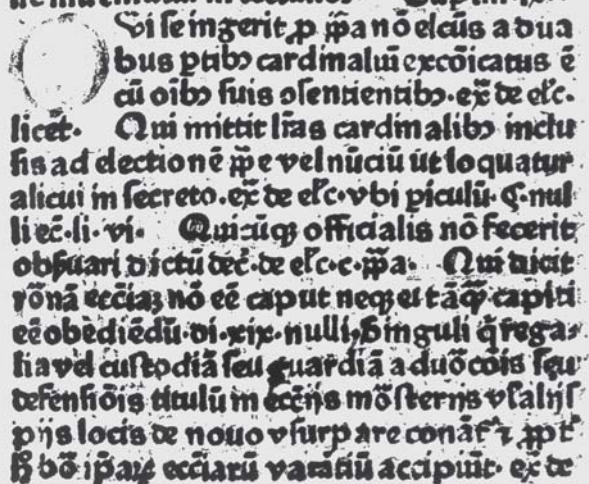 Qui se ingerit ꝓ pp̃a nō elc̄us a dua
bus ptibꝰ cardinaliū excōicatus ē
cū oībꝰ suis ↄsentientibꝰ. ex̄ de el̄c.
licet. Qui mittit lr̄as cardinalibꝰ inclu
sis ad electionē pp̄e vel nūciū ut loquatur
alicui in secreto. ex̄ de el̄c. vbi piculū. ¶. nul
li ec̄. li. vi. Quicūqꝫ officialis nō fecerit
obẞuari dictū dec̄. de el̄c. c. pp̄a. Qui dicit
rōnā ecc̄iaꝫ nō eē caput neqꝫ ei tāꝙ̄ capiti
eē obediēdū. di. xix. nulli. Singuli q̄ rega-
lia vel custodiā seu guardiā aduōcōis seu
defensiōis titulū in ecc̄ijs mōsterijs vl̄ alijs
pijs locis de nouo vsurpare conāt᷑ ⁊
bō ip̄aꝝ ecc̄iarū vacātiū accipiūt. ex̄ de